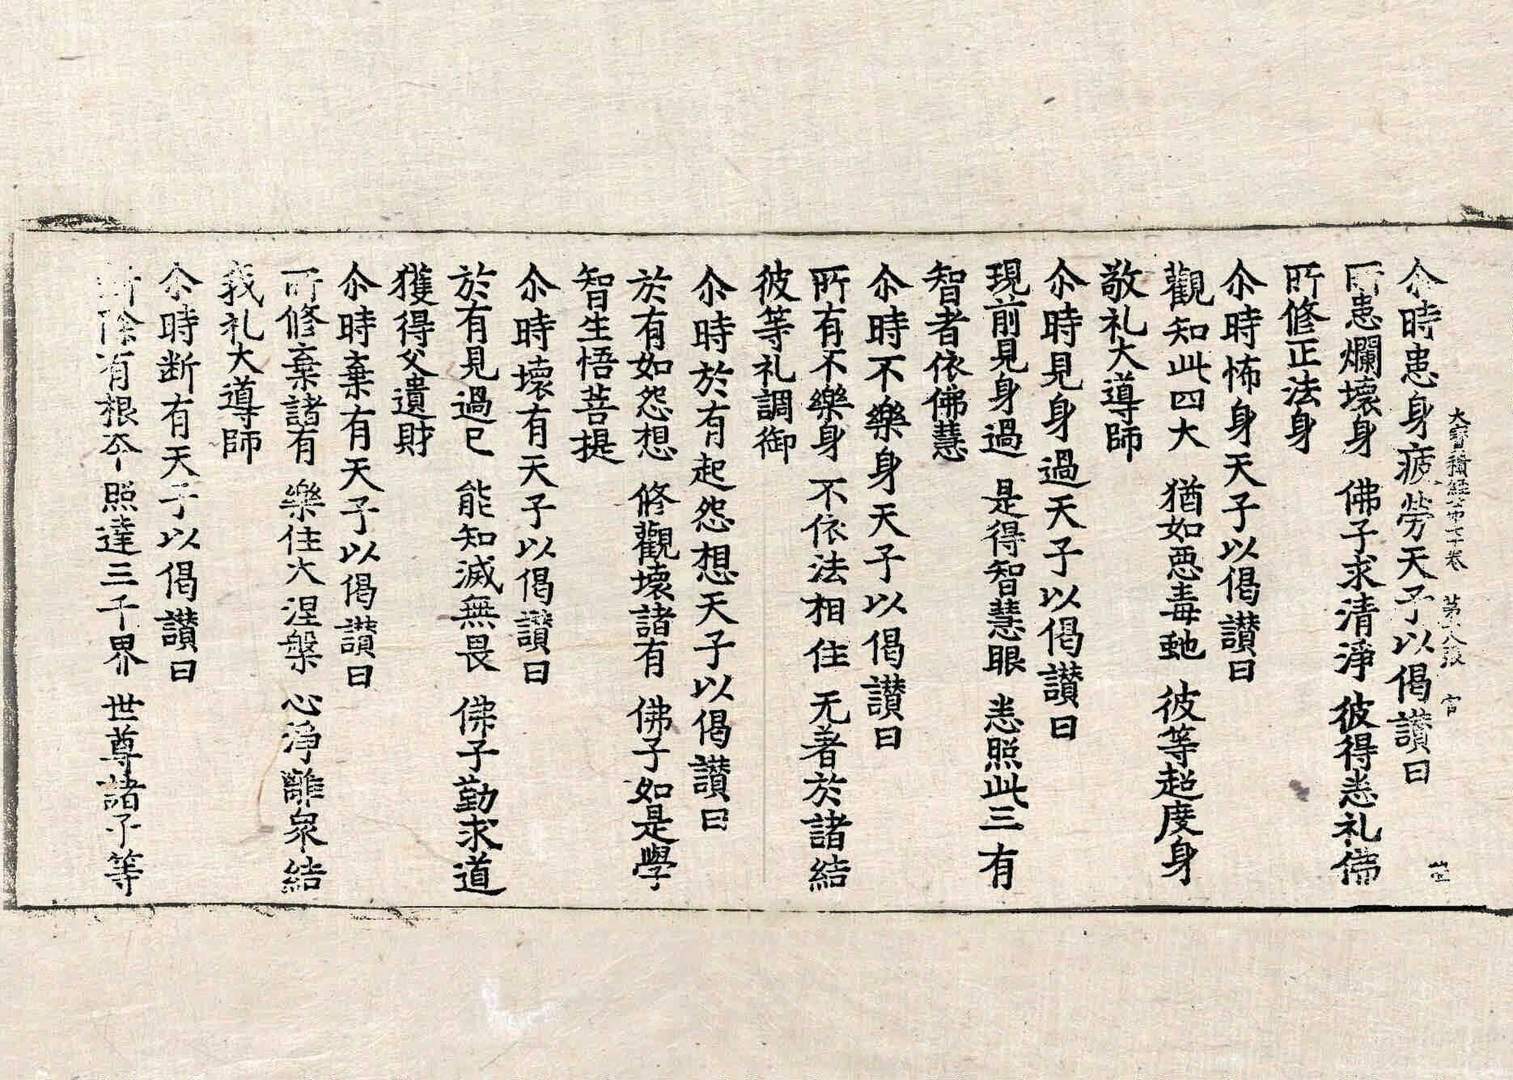 大寳積經第七十卷　第十八張　官
尒時患身疲勞天子以偈讃曰
所患爛壞身　佛子求清淨　彼得恙礼佛
所修正法身
尒時怖身天子以偈讃曰
觀知此四大　猶如惡毒虵　彼等超度身
敬礼大導師
尒時見身過天子以偈讃曰
現前見身過　是得智慧眼　恙照此三有
智者依佛慧
尒時不樂身天子以偈讃曰
所有不樂身　不依法相住　无著於諸結
彼等礼調御
尒時於有起怨想天子以偈讃曰
於有如怨想　修觀壞諸有　佛子如是學
智生悟菩提
尒時壞有天子以偈讃曰
於有見過已　能知滅無畏　佛子勤求道
獲得父遺財
尒時棄有天子以偈讃曰
所修棄諸有　樂住大涅槃　心淨離衆結
我礼大導師
尒時断有天子以偈讃曰
断除有根本　照達三千界　世尊諸子等